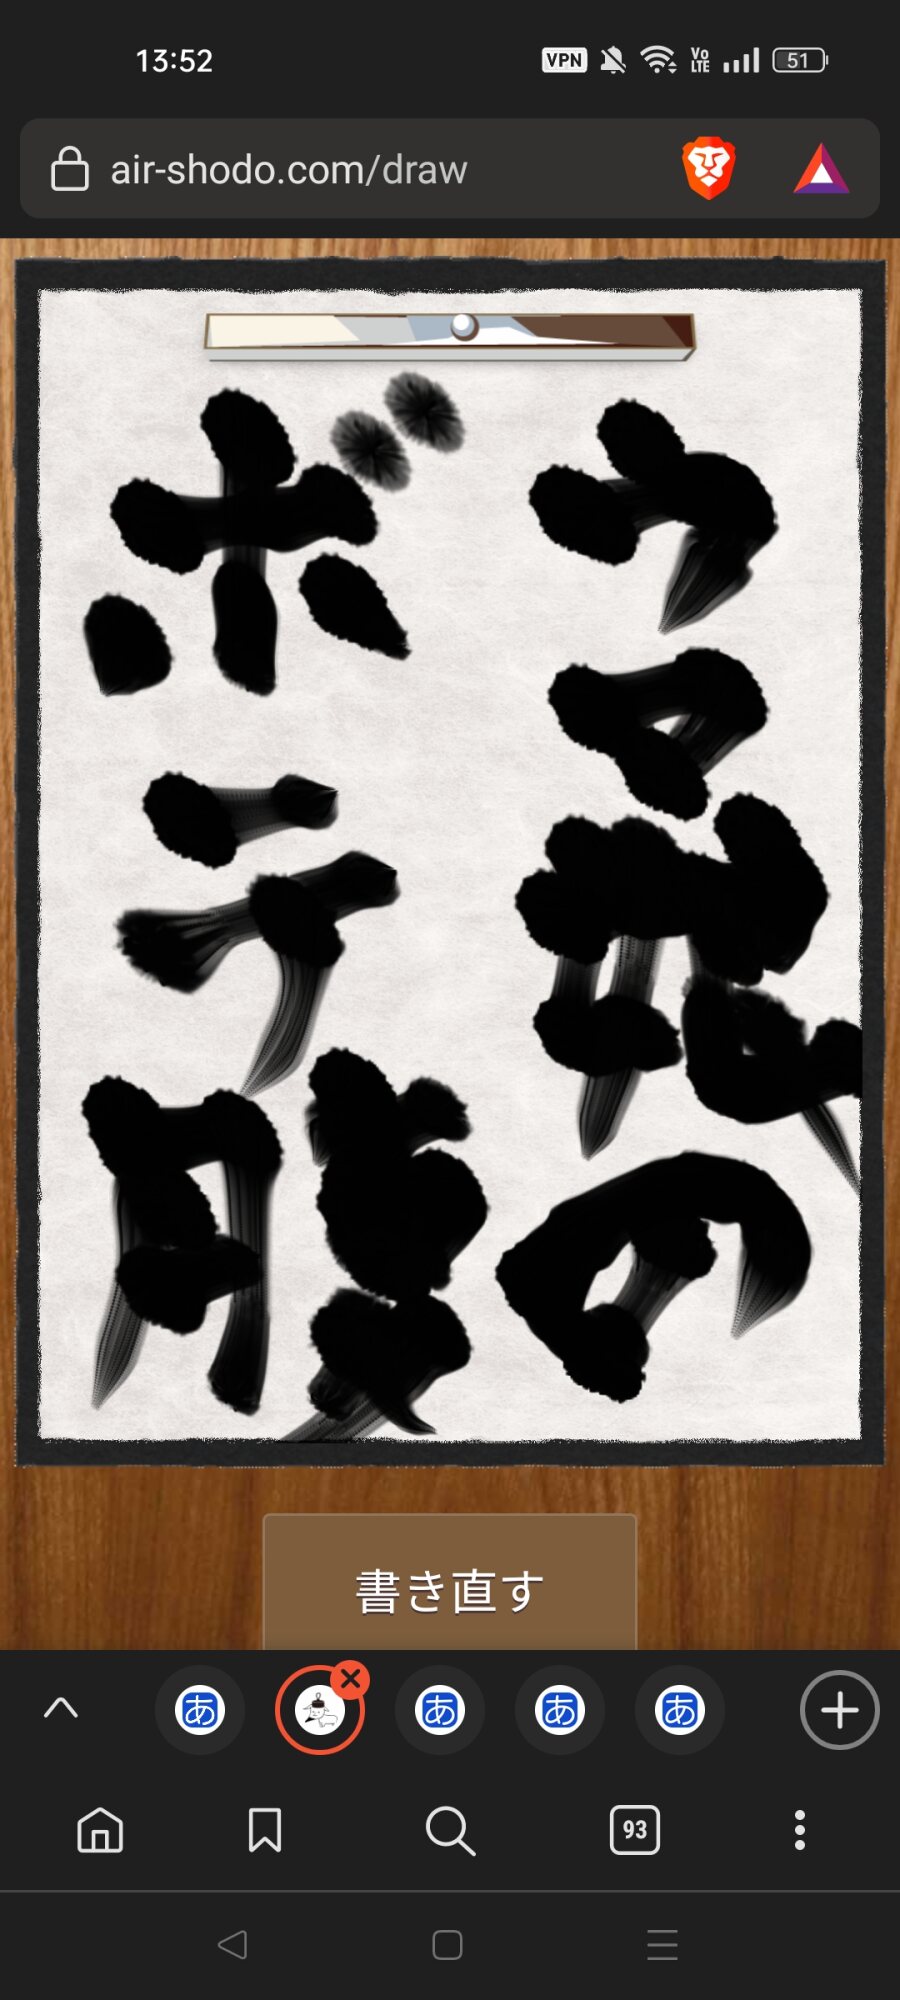 13:52 VPN Vo LTE 51
air-shodo.com/draw
ウマ娘の
ボテ腹
書き直す
あ あ あ あ
93